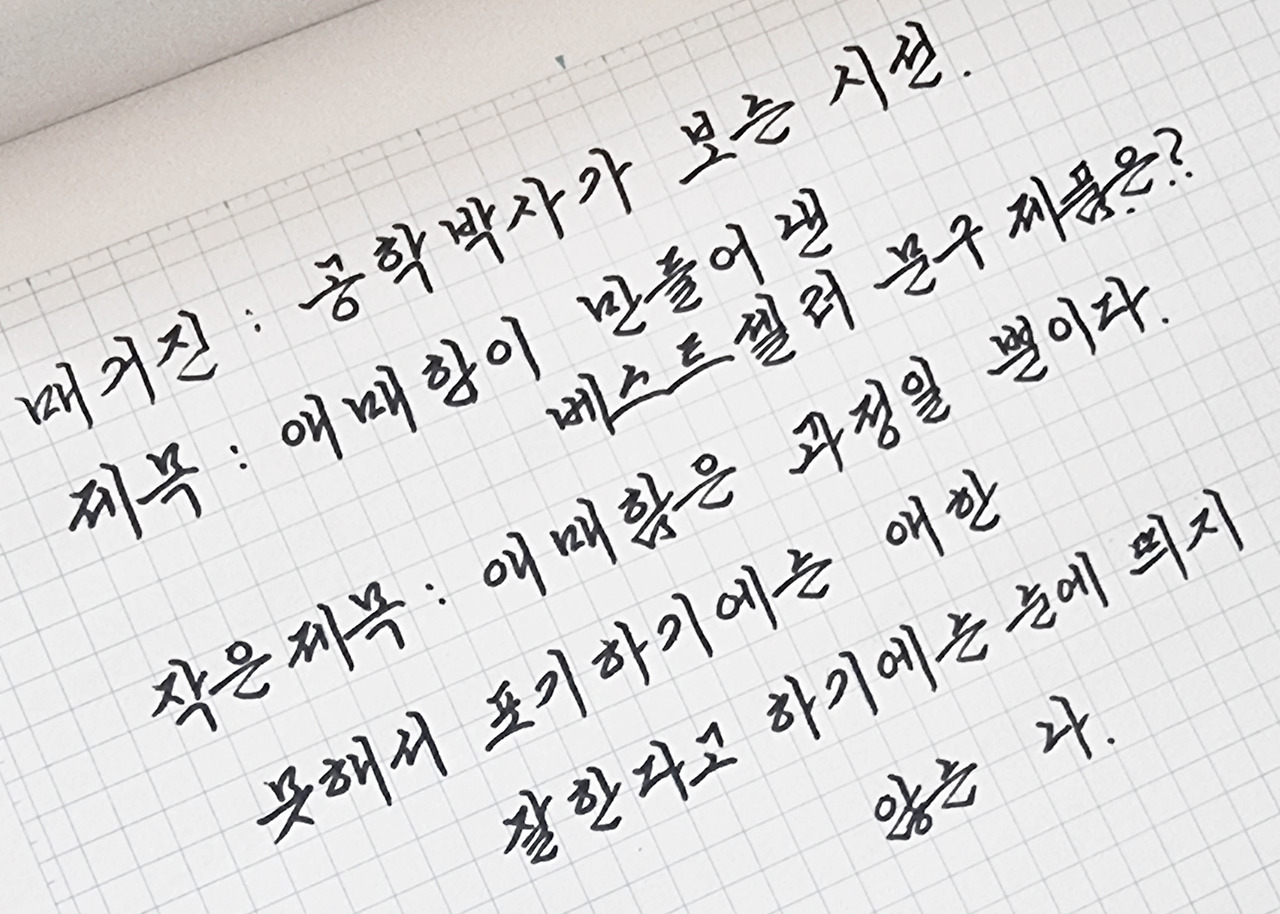 매거진 : 공학박사가 보는 시선.
제목 : 애매함이 만들어 낸
베스트셀러 문구 제품은?
작은제목 : 애매함은 과정일 뿐이다.
못해서 포기하기에는 애한
잘한다고 하기에는 눈에 띄지
않는 나.